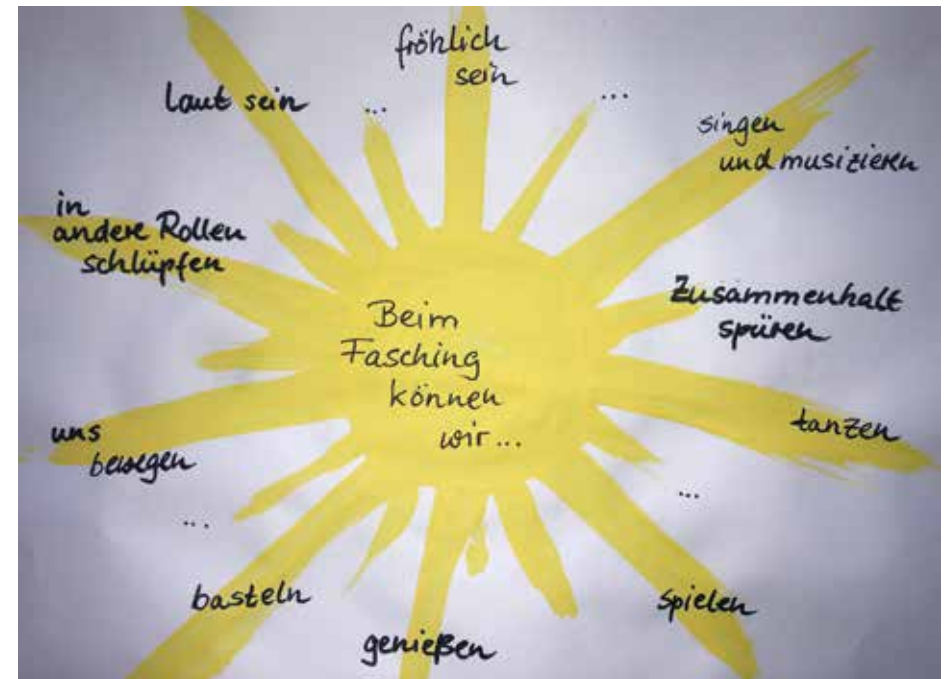 Beim
Fasching
können
wir...
fröhlich
sein
...
singen
und musizieren
Zusammenhalt
spüren
tanzen
...
spielen
genießen
basteln
...
uns
bewegen
in
andere Rollen
schlüpfen
laut sein
...